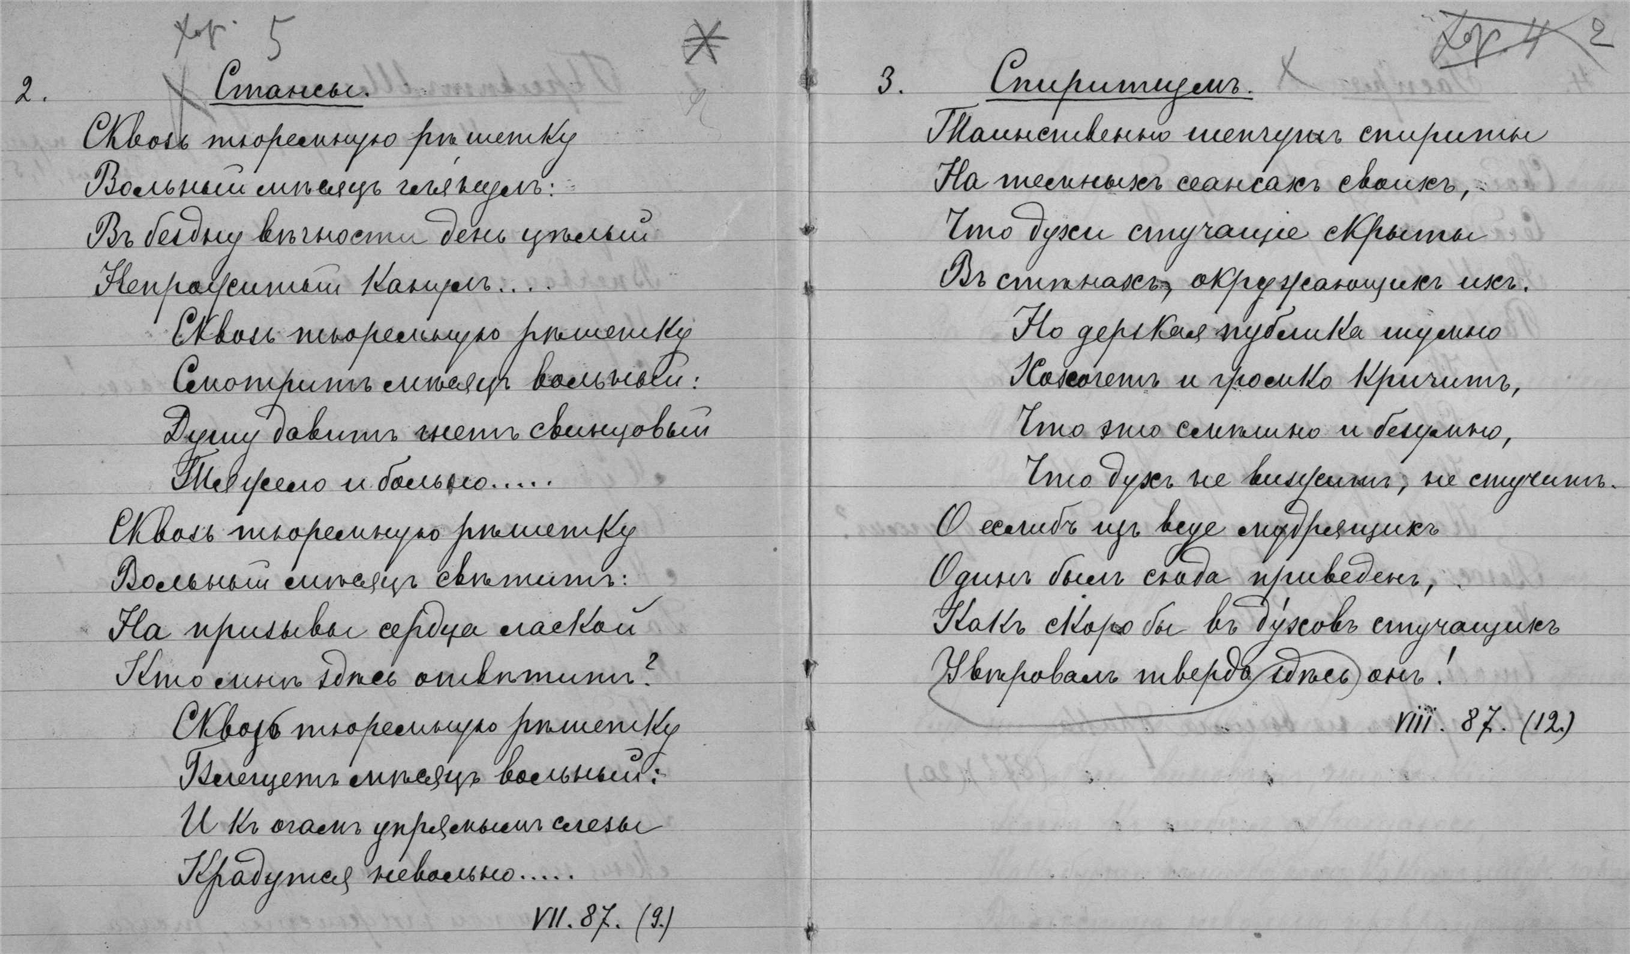 хор. 5
2. Стансы.
Сквозь тюремную рѣшетку
Вольный мѣсяцъ глянулъ:
Въ бездну вѣчности день цѣлый
Непрожитый канулъ....
Сквозь тюремную рѣшетку
Смотритъ мѣсяцъ вольный:
Душу давитъ гнетъ свинцовый
Тяжело и больно.....
Сквозь тюремную рѣшетку
Вольный мѣсяцъ свѣтитъ:
На призывы сердца лаской
Кто мнѣ здѣсь отвѣтитъ?
Сквозь тюремную рѣшетку
Блещетъ мѣсяцъ вольный:
И къ очамъ упрямымъ слезы
Крадутся невольно.....
VII. 87. (9.)
хор. 4 2
3. Спиритизмъ.
Таинственно шепчутъ спириты
На темныхъ сеансахъ своихъ,
Что духи стучащіе скрыты
Въ стѣнахъ, окружающихъ ихъ.
Но дерзкая публика шумно
Хохочетъ и громко кричитъ,
Что это смѣшно и безумно,
Что духъ не визжитъ, не стучитъ.
О еслибъ изъ всѣхъ мудрящихъ
Одинъ былъ сюда приведенъ,
Какъ скоро бы въ ду́ховъ стучащихъ
Увѣровалъ твердо здѣсь онъ!
VIII. 87. (12.)